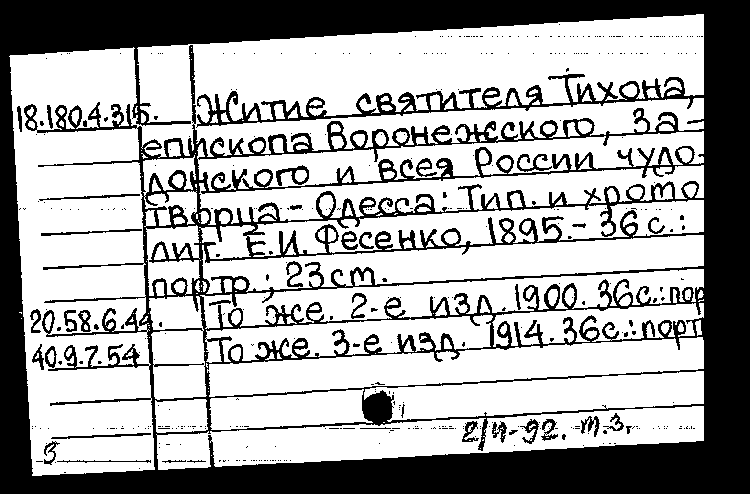 18.180.4.315. Житие святителя Тихона,
епископа Воронежского, За-
донского и всея России чудо-
творца - Одесса: Тип. и хромо
лит. Е.И. Фесенко, 1895.- 36 с.:
портр.; 23 cm.
20.58.6.44. То же. 2-е изд. 1900. 36с.: пор
40.9.7.54 То же. 3-е изд. 1914. 36с.: порт
2/II-92. т.з.
З